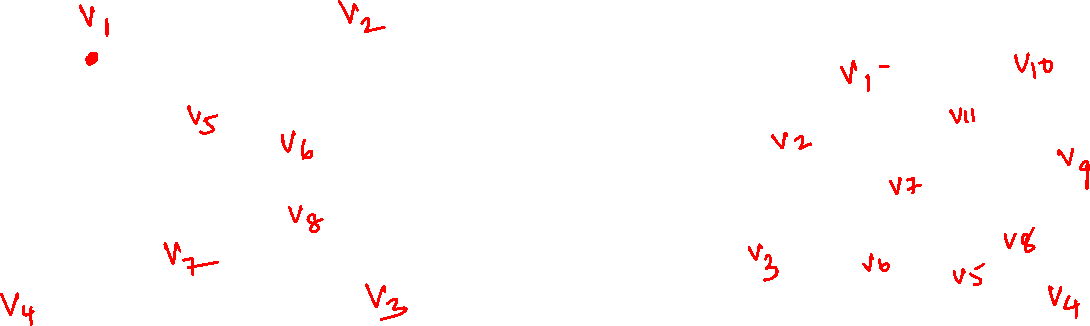 V1
V2
V5
V6
V8
V7
V4
V3
V1
V10
V11
V2
V9
V7
V8
V3
V6
V5
V4